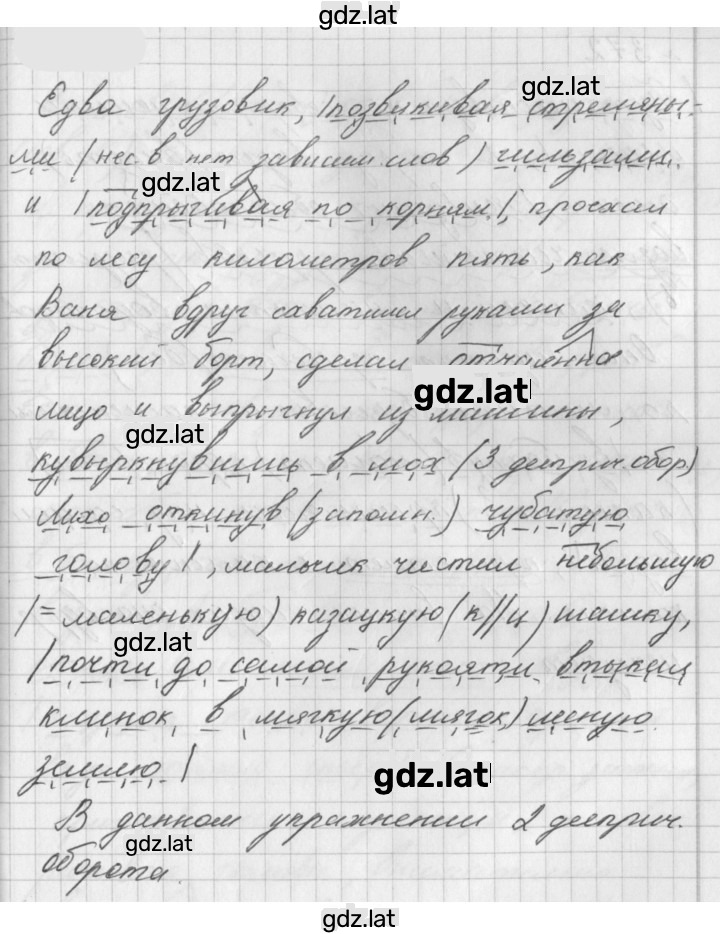 gdz.lat
Едва грузовик, |позвякивая стреляны-
gdz.lat
ми (нес.в нет зависим.слов) гильзами
gdz.lat
и |подпрыгивая по корням|, проехал
по лесу километров пять, как
Ваня вдруг схватился руками за
высокий борт, сделал отчаянное
gdz.lat
лицо и выпрыгнул из машины,
gdz.lat
кувыркнувшись в мох (3 дееприч.обор)
Лихо откинув (запомн.) чубатую
голову|, мальчик чистил небольшую
(=маленькую) казацкую (к//ц) шашку,
gdz.lat
|почти до самой рукояти втыкая
клинок в мягкую (мягок) лесную
землю|
gdz.lat
В данном упражнении 2 дееприч.
gdz.lat
оборота.
gdz.lat